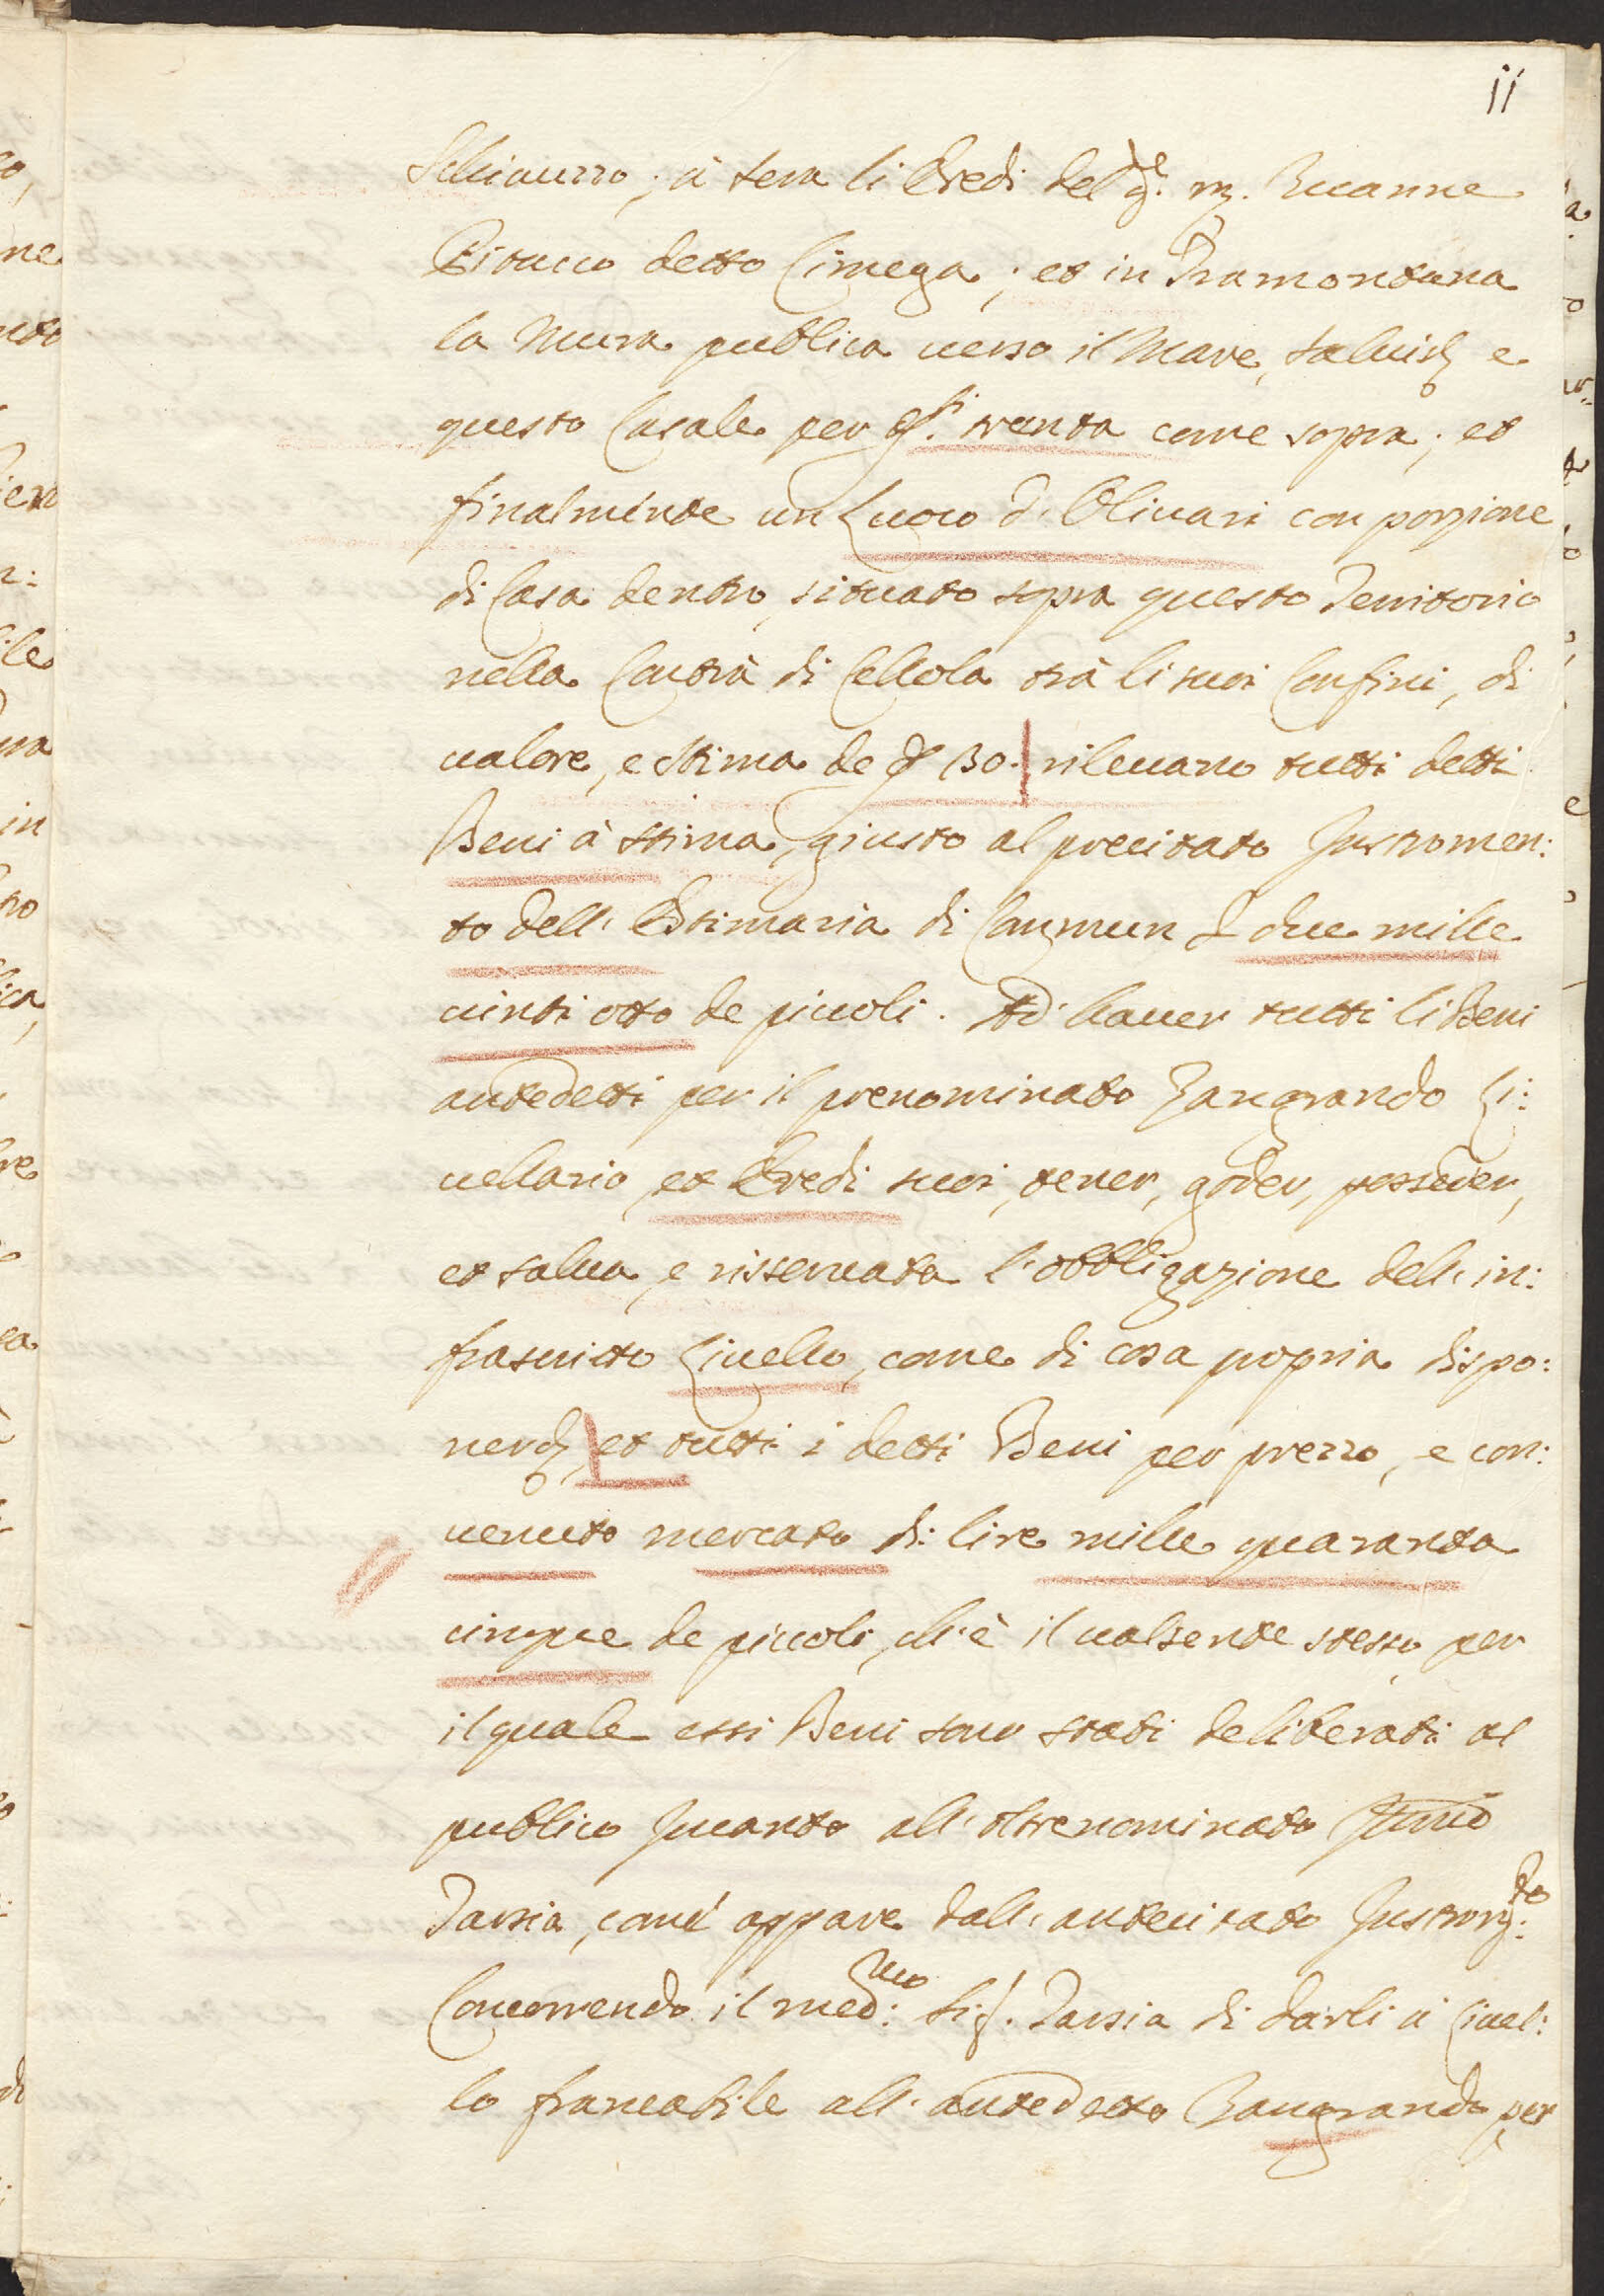 11
Schiauzzo; à sera li Eredi del q. m. Zuanne
Bitucco detto Cimega; et in Tramontana
la Mura publica verso il Mare, salvis e
questo Casale per trenta come sopra; et
finalmente un Luoco d'Olivari con porzione
di Casa dentro, situato sopra questo Territorio
nella Contrà di Cellola trà li suoi Confini, di
valore, e stima de 130. rilevano tutti detti
Beni à stima, giusto al precitato Instromen:
to dell'Estimaria di Commun £ due mille
vinti otto de piccoli. Ad' haver tutti li Beni
antedetti per il prenominato Zangrando Li:
vellario, et Eredi suoi, tener, goder, posseder,
et salva, e risservata l'obbligazione dell'in:
frascritto Livello, come di cosa propria dispo:
nend, et tutti i detti Beni per prezzo, e con:
venuto mercato di lire mille quaranta
cinque de piccoli, ch'è il valsente stesso, per
il quale essi Beni sono stati deliberati al
publico Incanto all'oltrenominato
Tarsia, come appare dall'antecitato Instrom:to
Concorrendo il med:mo Sig.r Tarsia di darli à Livel:
lo francabile all'antedetto Zangrando, per